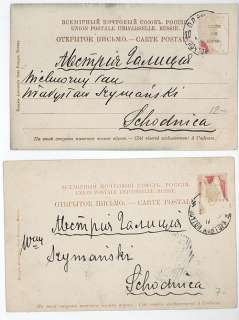 ВСЕМІРНЫЙ ПОЧТОВЫЙ СОЮЗЪ. РОССІЯ.
UNION POSTALE UNIVERSELLE. RUSSIE.
ОТКРЫТОЕ ПИСЬМО. — CARTE POSTALE.
Австрія Галиція
Wielmożny Pan
Władysław Szymański
Schodnica
На этой сторонѣ пишется только адресъ. — Côté réservé exclusivement à l'adresse.
ВСЕМІРНЫЙ ПОЧТОВЫЙ СОЮЗЪ. РОССІЯ.
UNION POSTALE UNIVERSELLE. RUSSIE.
ОТКРЫТОЕ ПИСЬМО. — CARTE POSTALE.
Австрія Галиція
Szymański
Schodnica